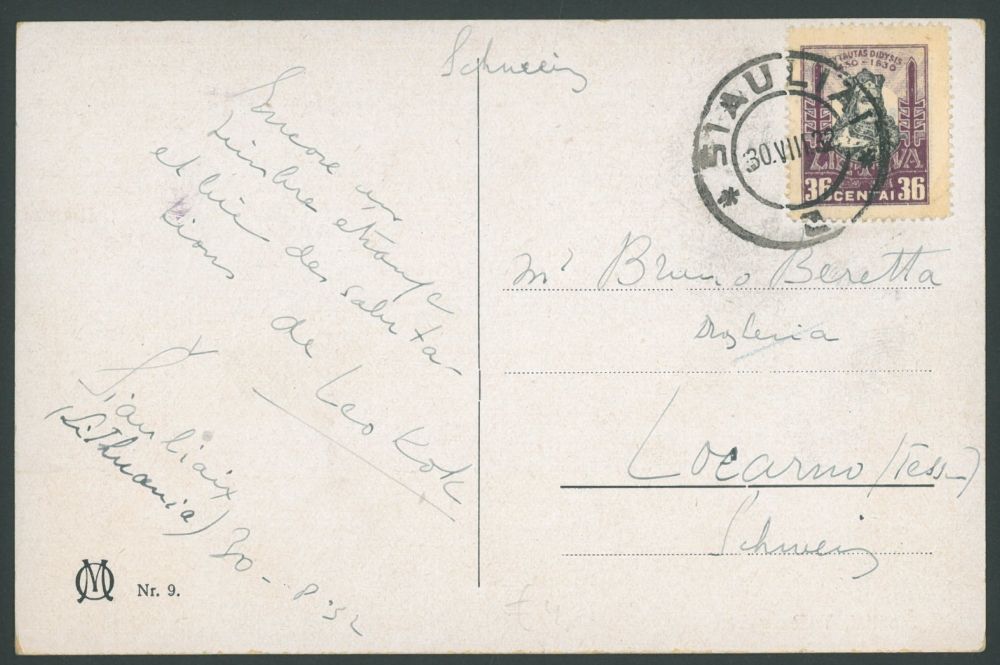 Schweiz
Encore un
timbre étrange
et bie des saluta-
tions
de Leo Kok
Šiauliaix
(Lithuania) 30-8'32
Nr. 9.
VYTAUTAS DIDYSIS
1430-1930
LIETUVA
36 CENTAI 36
ŠIAULIAI
30.VIII.32
Mr Bruno Beretta
Drogleria
Locarno (Tessin)
Schweiz